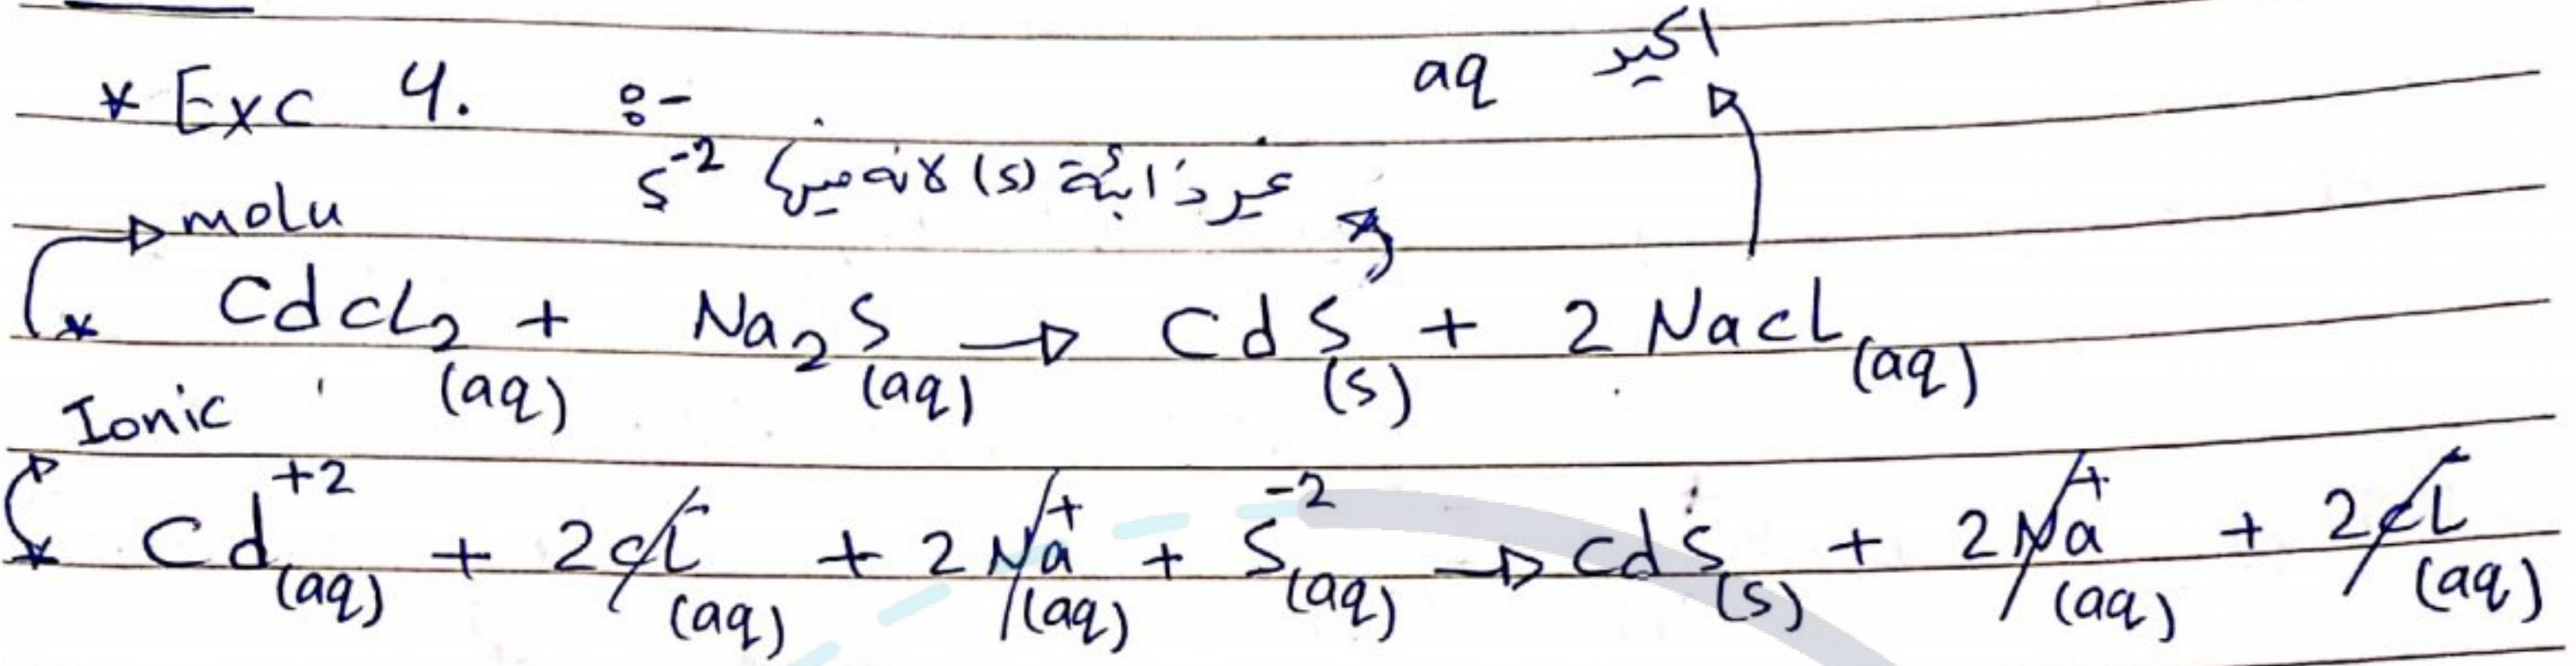 * Exc 4. :- aq اكيد
غير ذائبة (s) لانه فيها S⁻²
molu
* CdCl₂(aq) + Na₂S(aq) → CdS(s) + 2 NaCl(aq)
Ionic
* Cd⁺²(aq) + 2Cl⁻(aq) + 2Na⁺(aq) + S⁻²(aq) → CdS(s) + 2Na⁺(aq) + 2Cl⁻(aq)